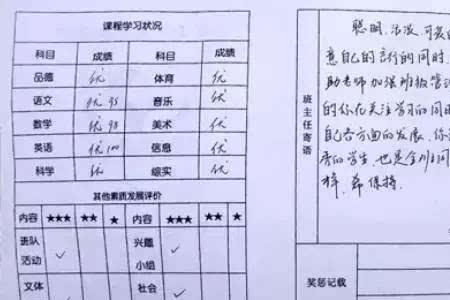 课程学习状况
科目 成绩 科目 成绩
品德 优 体育 优
语文 优 95 音乐 优
数学 优 98 美术 优
英语 优 100 信息 优
科学 优 综实 优
其他素质发展评价
内容 ★★★ ★★ ★ 内容 ★★★ ★★ ★
班队 兴趣
活动 ✓ 小组 ✓
文体 社会
班主任寄语
聪明、活泼、可爱的
意自己的言行的同时
助老师加强班级管
的你在关注学习的同时
自己各方面的发展.你
秀的学生,也是全班同
样,希保持.
奖惩记载